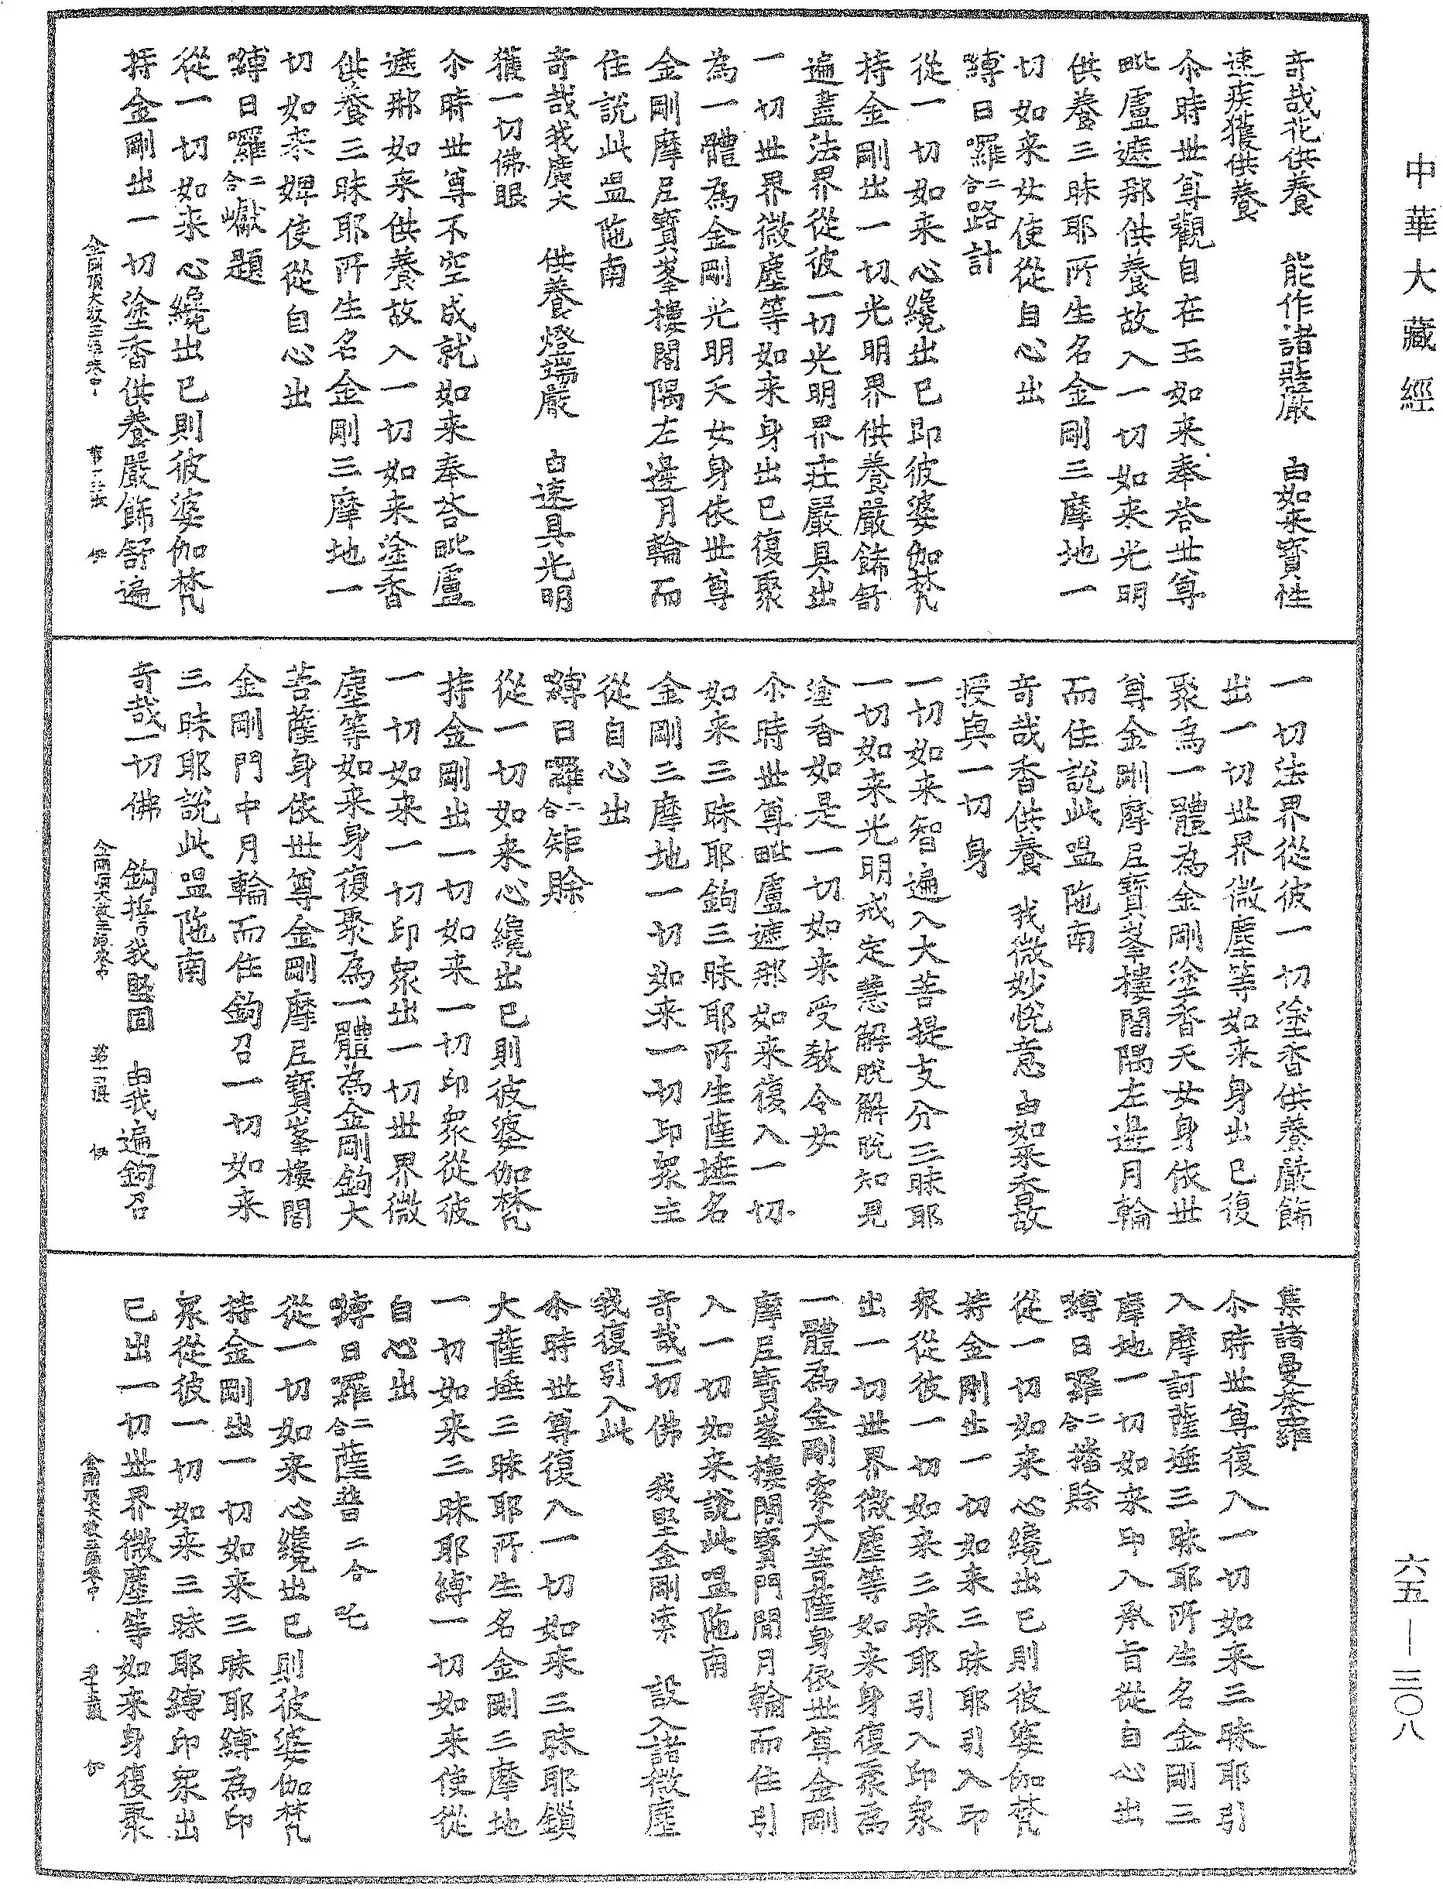 中華大藏經
奇哉花供養　能作諸莊嚴　由如来寶性
速疾獲供養
尒時世尊觀自在王如来奉荅世尊
毗盧遮那供養故入一切如来光明
供養三昧耶所生名金剛三摩地一
切如来女使從自心出
縛日囉二合路計
從一切如来心纔出已即彼婆伽梵
持金剛出一切光明界供養嚴飾舒
遍盡法界從彼一切光明界莊嚴具出
一切世界微塵等如来身出已復聚
為一體為金剛光明天女身依世尊
金剛摩尼寶峯樓閣隅左邊月輪而
住說此嗢陁南
奇哉我廣大　供養燈端嚴　由速具光明
獲一切佛眼
尒時世尊不空成就如来奉荅毗盧
遮那如来供養故入一切如来塗香
供養三昧耶所生名金剛三摩地一
切如来婢使從自心出
縛日囉二合巘題
從一切如来心纔出已則彼婆伽梵
持金剛出一切塗香供養嚴飾舒遍
金剛頂大教王經卷中　伊
一切法界從彼一切塗香供養嚴飾
出一切世界微塵等如来身出已復
聚為一體為金剛塗香天女身依世
尊金剛摩尼寶峯樓閣隅左邊月輪
而住說此嗢陁南
奇哉香供養　我微妙悅意　由如来香故
授與一切身
一切如来智遍入大菩提支分三昧耶
一切如来光明戒定慧解脫解脫知見
塗香如是一切如来受教令女
尒時世尊毗盧遮那如来復入一切
如来三昧耶鉤三昧耶所生薩埵名
金剛三摩地一切如来一切印衆主
從自心出
縛日囉二合矩賒
從一切如来心纔出已則彼婆伽梵
持金剛出一切如来一切印衆從彼
一切如来一切印衆出一切世界微
塵等如来身復聚為一體為金剛鉤大
菩薩身依世尊金剛摩尼寶峯樓閣
金剛門中月輪而住鉤召一切如来
三昧耶說此嗢陁南
奇哉一切佛　鉤誓我堅固　由我遍鉤召
金剛頂大教王經卷中　伊
集諸曼荼羅
尒時世尊復入一切如来三昧耶引
入摩訶薩埵三昧耶所生名金剛三
摩地一切如来印入承旨從自心出
縛日囉二合播賒
從一切如来心纔出已則彼婆伽梵
持金剛出一切如来三昧耶引入印
衆從彼一切如来三昧耶引入印衆
出一切世界微塵等如来身復聚為
一體為金剛索大菩薩身依世尊金剛
摩尼寶峯樓閣寶門間月輪而住引
入一切如来說此嗢陁南
奇哉一切佛　我堅金剛索　設入諸微塵
我復引入此
尒時世尊復入一切如来三昧耶鎖
大薩埵三昧耶所生名金剛三摩地
一切如来三昧耶縛一切如来使從
自心出
縛日囉二合薩普二合吒
從一切如来心纔出已則彼婆伽梵
持金剛出一切如来三昧耶縛為印
衆從彼一切如来三昧耶縛印衆出
已出一切世界微塵等如来身復聚
金剛頂大教王經卷中
六五—三〇八